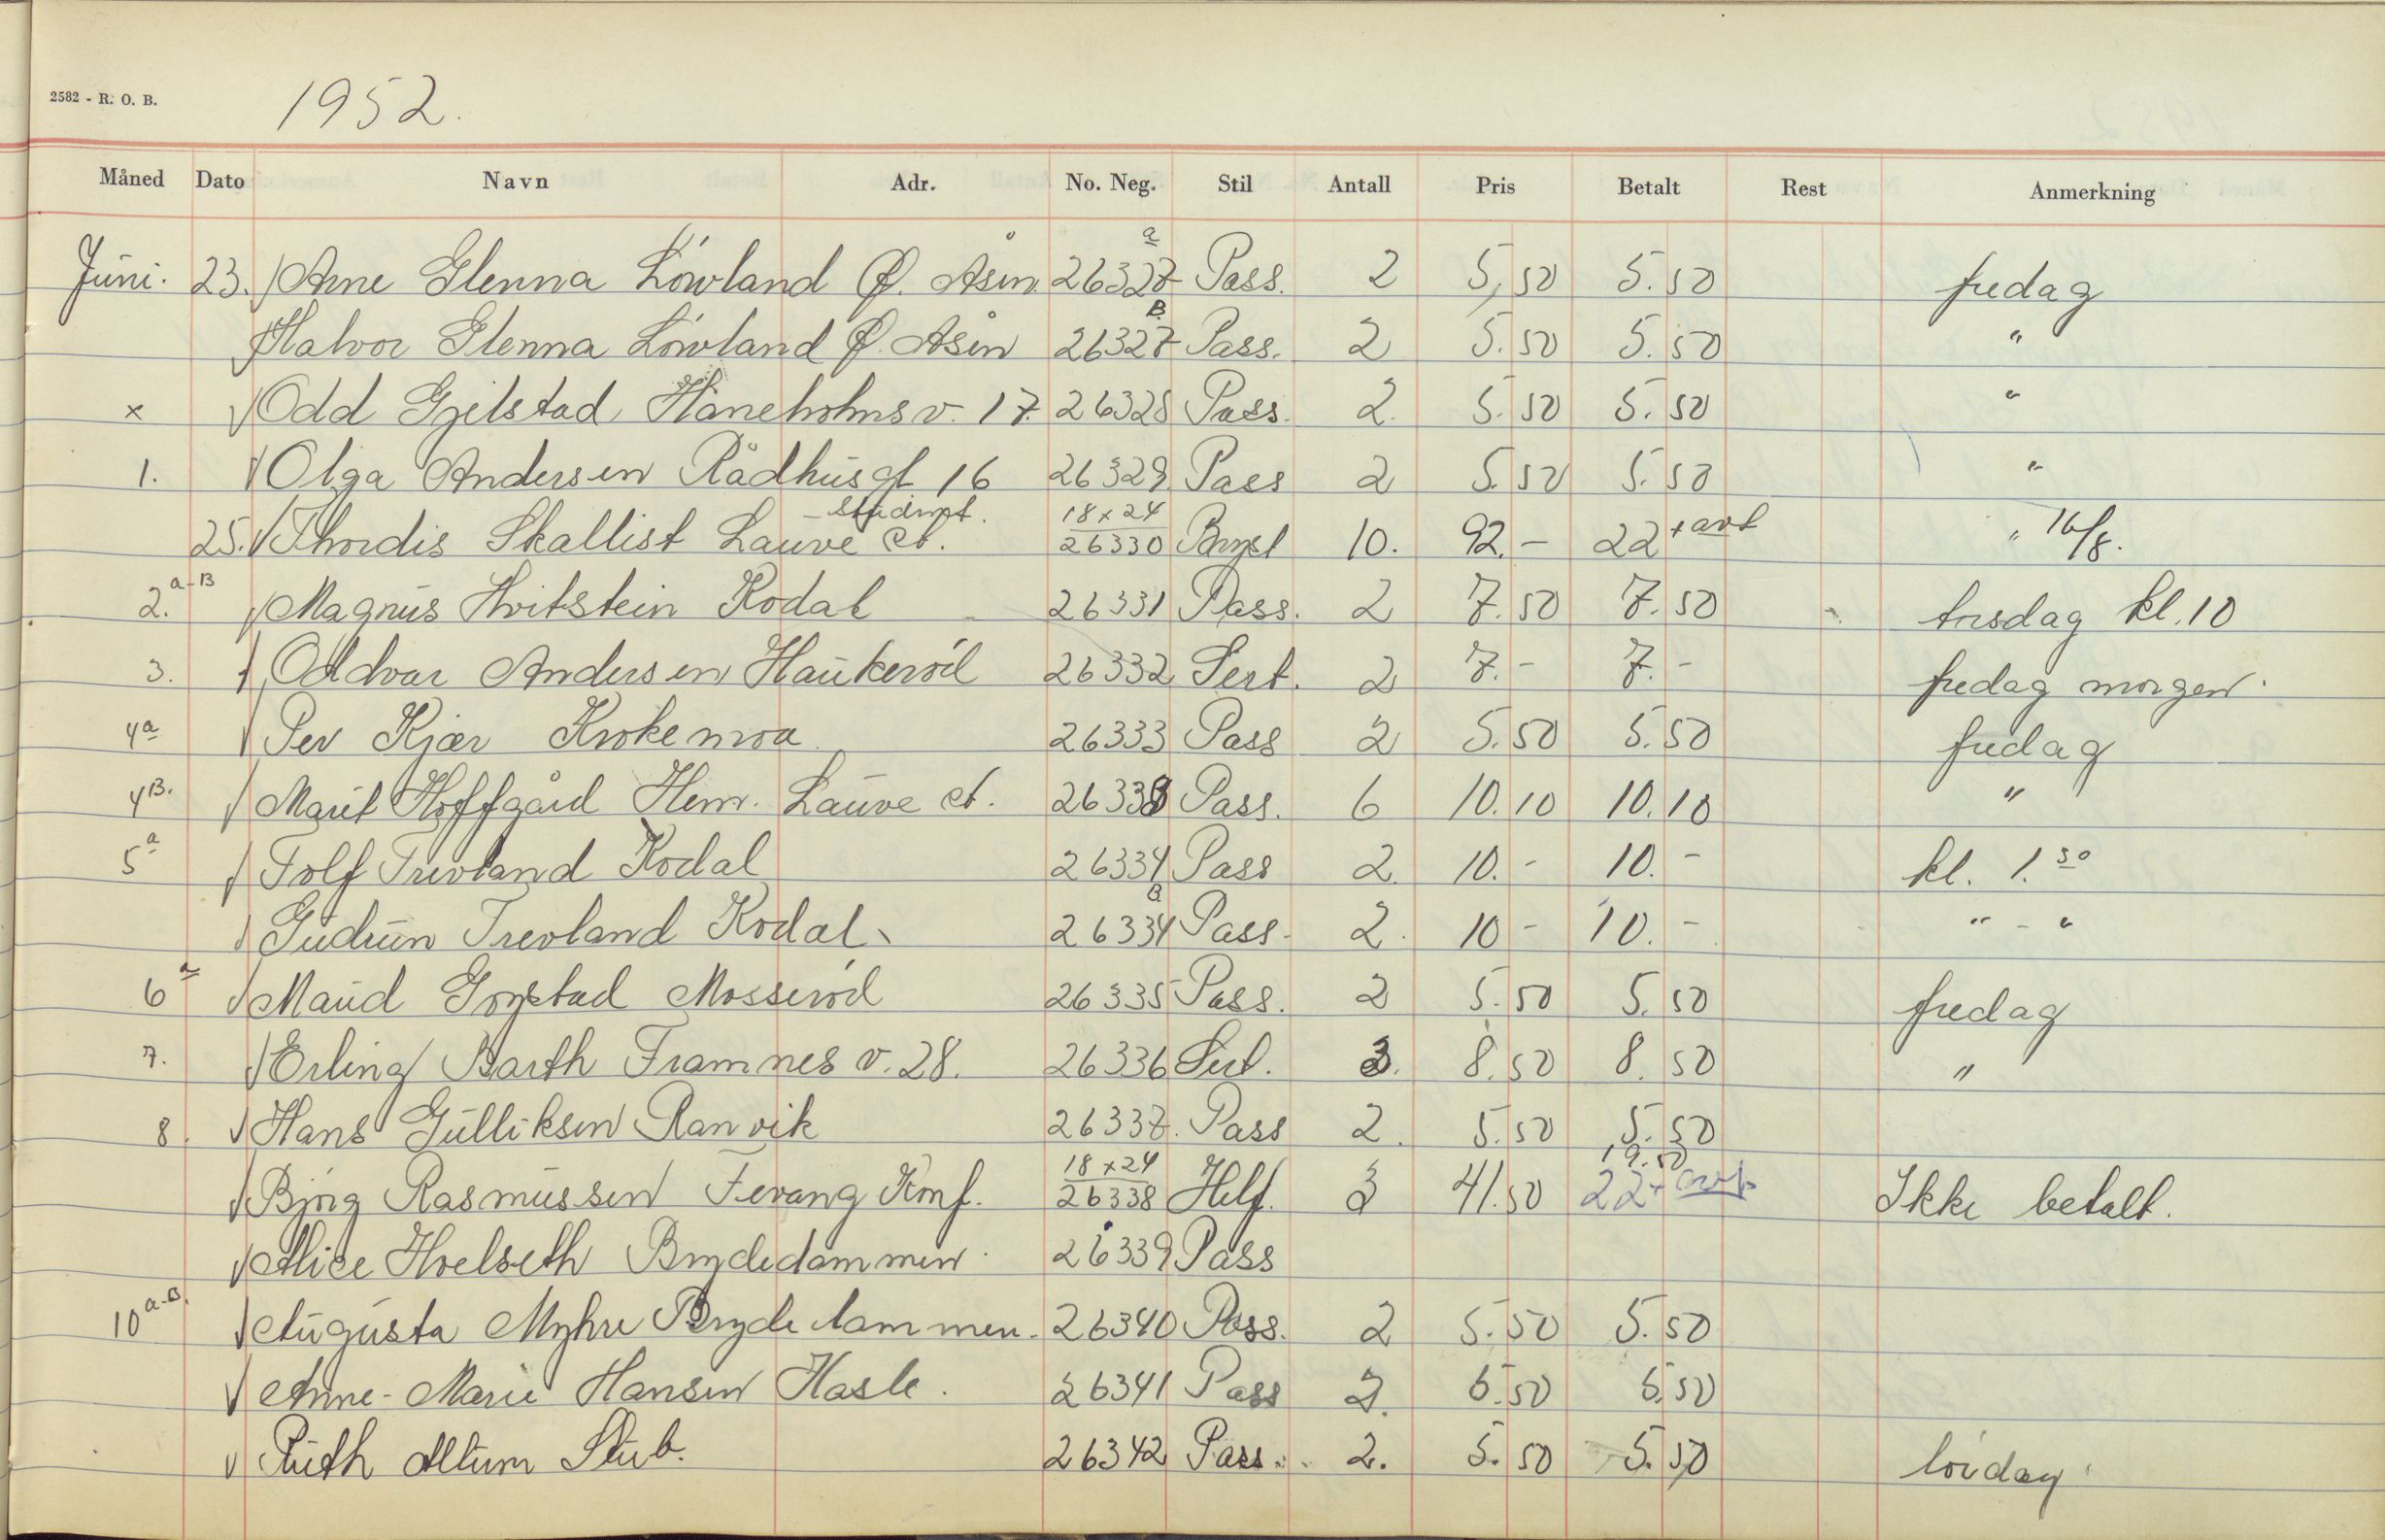 2582 - R. O. B.
1952.
Måned Dato Navn Adr. No. Neg. Stil Antall Pris Betalt Rest Anmerkning
Juni. 23. Arne Glenna Lówland Ø. Åsen 26327 a Pass. 2 5,50 5.50 fredag
Halvor Glenna Lówland Ø. Åsen 26327 B. Pass. 2 5.50 5.50 "
x Odd Gjelstad, Haneholmsv. 17. 26328 Pass. 2. 5.50 5.50 "
1. Olga Andersen Rådhusgt 16 26329 Pass 2 5.50 5.50 "
25. Thordis Skallist Lauve et. 18x24 26330 10. 92.- 22 + " 16/8.
2. a-B Magnus Hvitstein Kodal 26331 Pass. 2 7.50 7.50 torsdag kl. 10
3. Oddvar Andersen Haukeród 26332 Sert. 2 7.- 7.- fredag morgen.
4a Per Kjær Krokemoa 26333 Pass 2 5.50 5.50 fredag
4B. Marit Hoffgård Hem. Lauve et. 26333 Pass. 6 10.10 10.10 "
5a Tolf Trevland Kodal 26334 Pass 2. 10.- 10.- kl. 1.30
Gudrun Trevland Kodal 26334 B Pass. 2. 10 - 10.- " - "
6a Maud Mosseród 26335 Pass. 2 5.50 5.50 fredag
7. Erling Barth Framnes v. 28. 26336 Sert. 3. 8.50 8.50 "
8. Hans Gulliksen Ranvik 26337. Pass 2. 5.50 5.50
Bjórg Rasmussen Fevang Konf. 18x24 26338 Helf. 3 41.50 19.50 22+ Ikke betalt.
Alice Hvelseth Brydedammen. 26339 Pass
10 a-B. Augusta Myhre Brydedammen. 26340 Pass. 2 5.50 5.50
Anne-Marie Hansen Hasle. 26341 Pass 2. 5.50 5.50
Ruth Altum Stub. 26342 Pass. 2. 5.50 5.50 lórdag